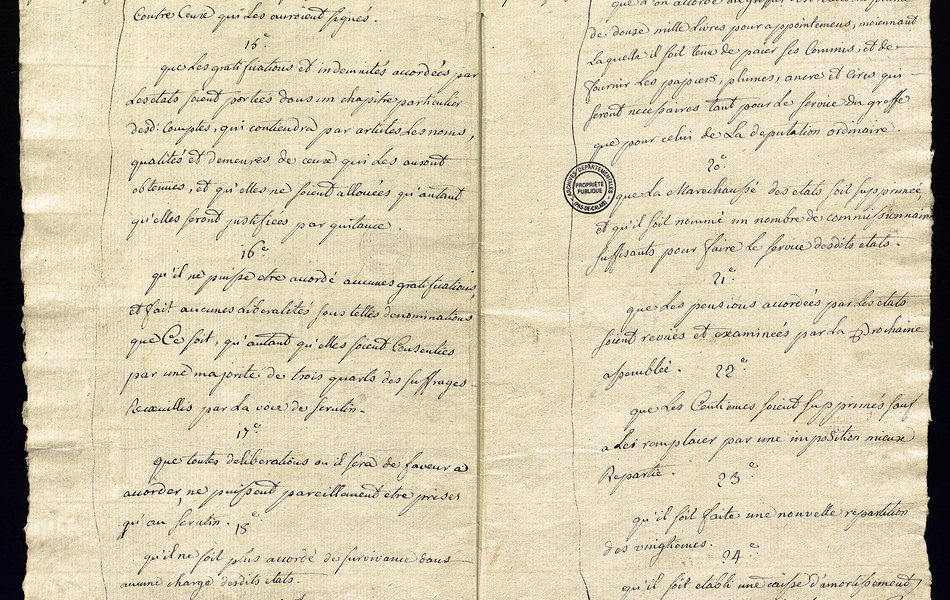 Contre Ceux qui Les auroient signés.
15e
que Les gratifications et indemnités accordées par
Les etats soient portées dans un chapitre particulier
desd: Comptes, qui contiendra par articles Les noms,
qualités et demeures de ceux qui Les auront
obtenues, et qu'elles ne soient allouées qu'autant
qu'elles seront justifiées par quitance.
16e
qu'il ne puisse etre accordé aucunes gratifications,
et fait aucunes Liberalités sous telles denominations
que Ce soit, qu'autant qu'elles soient Consenties
par une majorité de trois quarts des suffrages
Recœuillis par La voie de scrutin.
17e
que toutes deliberations ou il sera de faveur a
accorder, ne puissent pareillement etre prises
qu'au scrutin.
18e
qu'il ne soit plus accordé de survivance dans
aucune charge desdits etats.
de douze mille Livres pour appointemens, moiennant
Laquelle il soit tenu de paier ses Commis, et de
fournir Les papiers, plumes, ancre et Cires qui
seront necessaires tant pour Le service du greffe
que pour celui de La deputation ordinaire.
20e
que La Marechaussé des etats soit supprimée,
et qu'il soit nommé un nombre de commissionnaires
suffisants pour faire Le service desdits etats.
21e
que Les pensions accordées par Les etats
soient revües et examinées par La prochaine
assemblée.
22e
que Les Centiemes soient supprimés sauf
a Les remplacer par une imposition mieux
Repartie.
23e
qu'il soit faite une nouvelle repartition
des vingtiemes.
24e
qu'il soit etabli une caisse d'amortissement,
ARCHIVES DEPARTEMENTALES
PROPRIÉTÉ
PUBLIQUE
PAS-DE-CALAIS